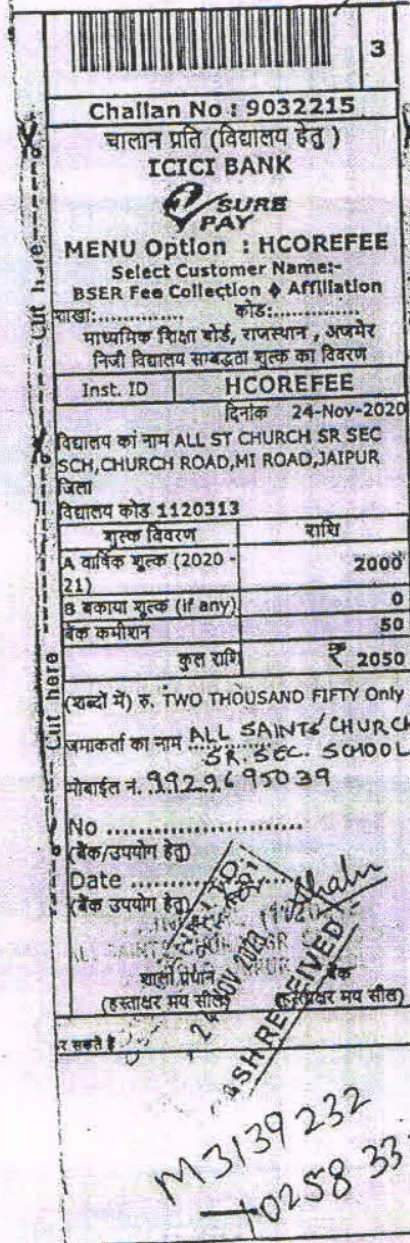 3
Challan No : 9032215
चालान प्रति (विद्यालय हेतु )
ICICI BANK
SURE
PAY
MENU Option : HCOREFEE
Select Customer Name:-
BSER Fee Collection ♦ Affiliation
शाखा:.............. कोड:..............
माध्यमिक शिक्षा बोर्ड, राजस्थान , अजमेर
निजी विद्यालय सम्बद्धता शुल्क का विवरण
Inst. ID HCOREFEE
दिनांक 24-Nov-2020
विद्यालय का नाम ALL ST CHURCH SR SEC
SCH,CHURCH ROAD,MI ROAD,JAIPUR
जिला
विद्यालय कोड 1120313
शुल्क विवरण राशि
A वार्षिक शुल्क (2020 - 2000
21)
B बकाया शुल्क (if any) 0
बैंक कमीशन 50
कुल राशि ₹ 2050
(शब्दों में) रु. TWO THOUSAND FIFTY Only
जमाकर्ता का नाम ALL SAINTS' CHURCH
SR. SEC. SCHOOL
मोबाईल नं. 9929695039
No ........................
(बैंक/उपयोग हेतु)
Date ....................
(बैंक उपयोग हेतु)
24 NOV
CASH RECEIVED
शाला प्रधान बैंक
(हस्ताक्षर मय सील) (हस्ताक्षर मय सील)
र सकते है
M3139232
0258 33
Cut here
Cut here